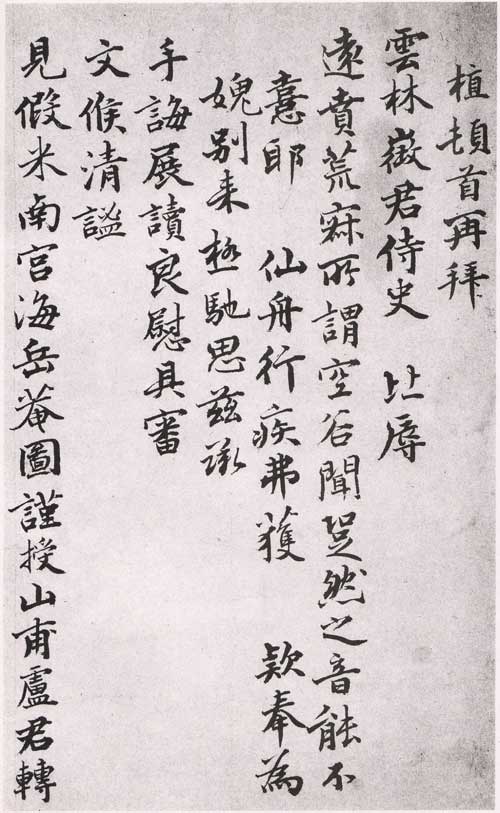 植頓首再拜
雲林徵君侍史 比辱
遠賁荒寂所謂空谷聞跫然之音能不
憙耶 仙舟行疾弗獲 欵奉為
媿别来極馳思茲承
手誨展讀良慰具審
文候清謐
見假米南宫海岳菴圖謹授山甫盧君轉